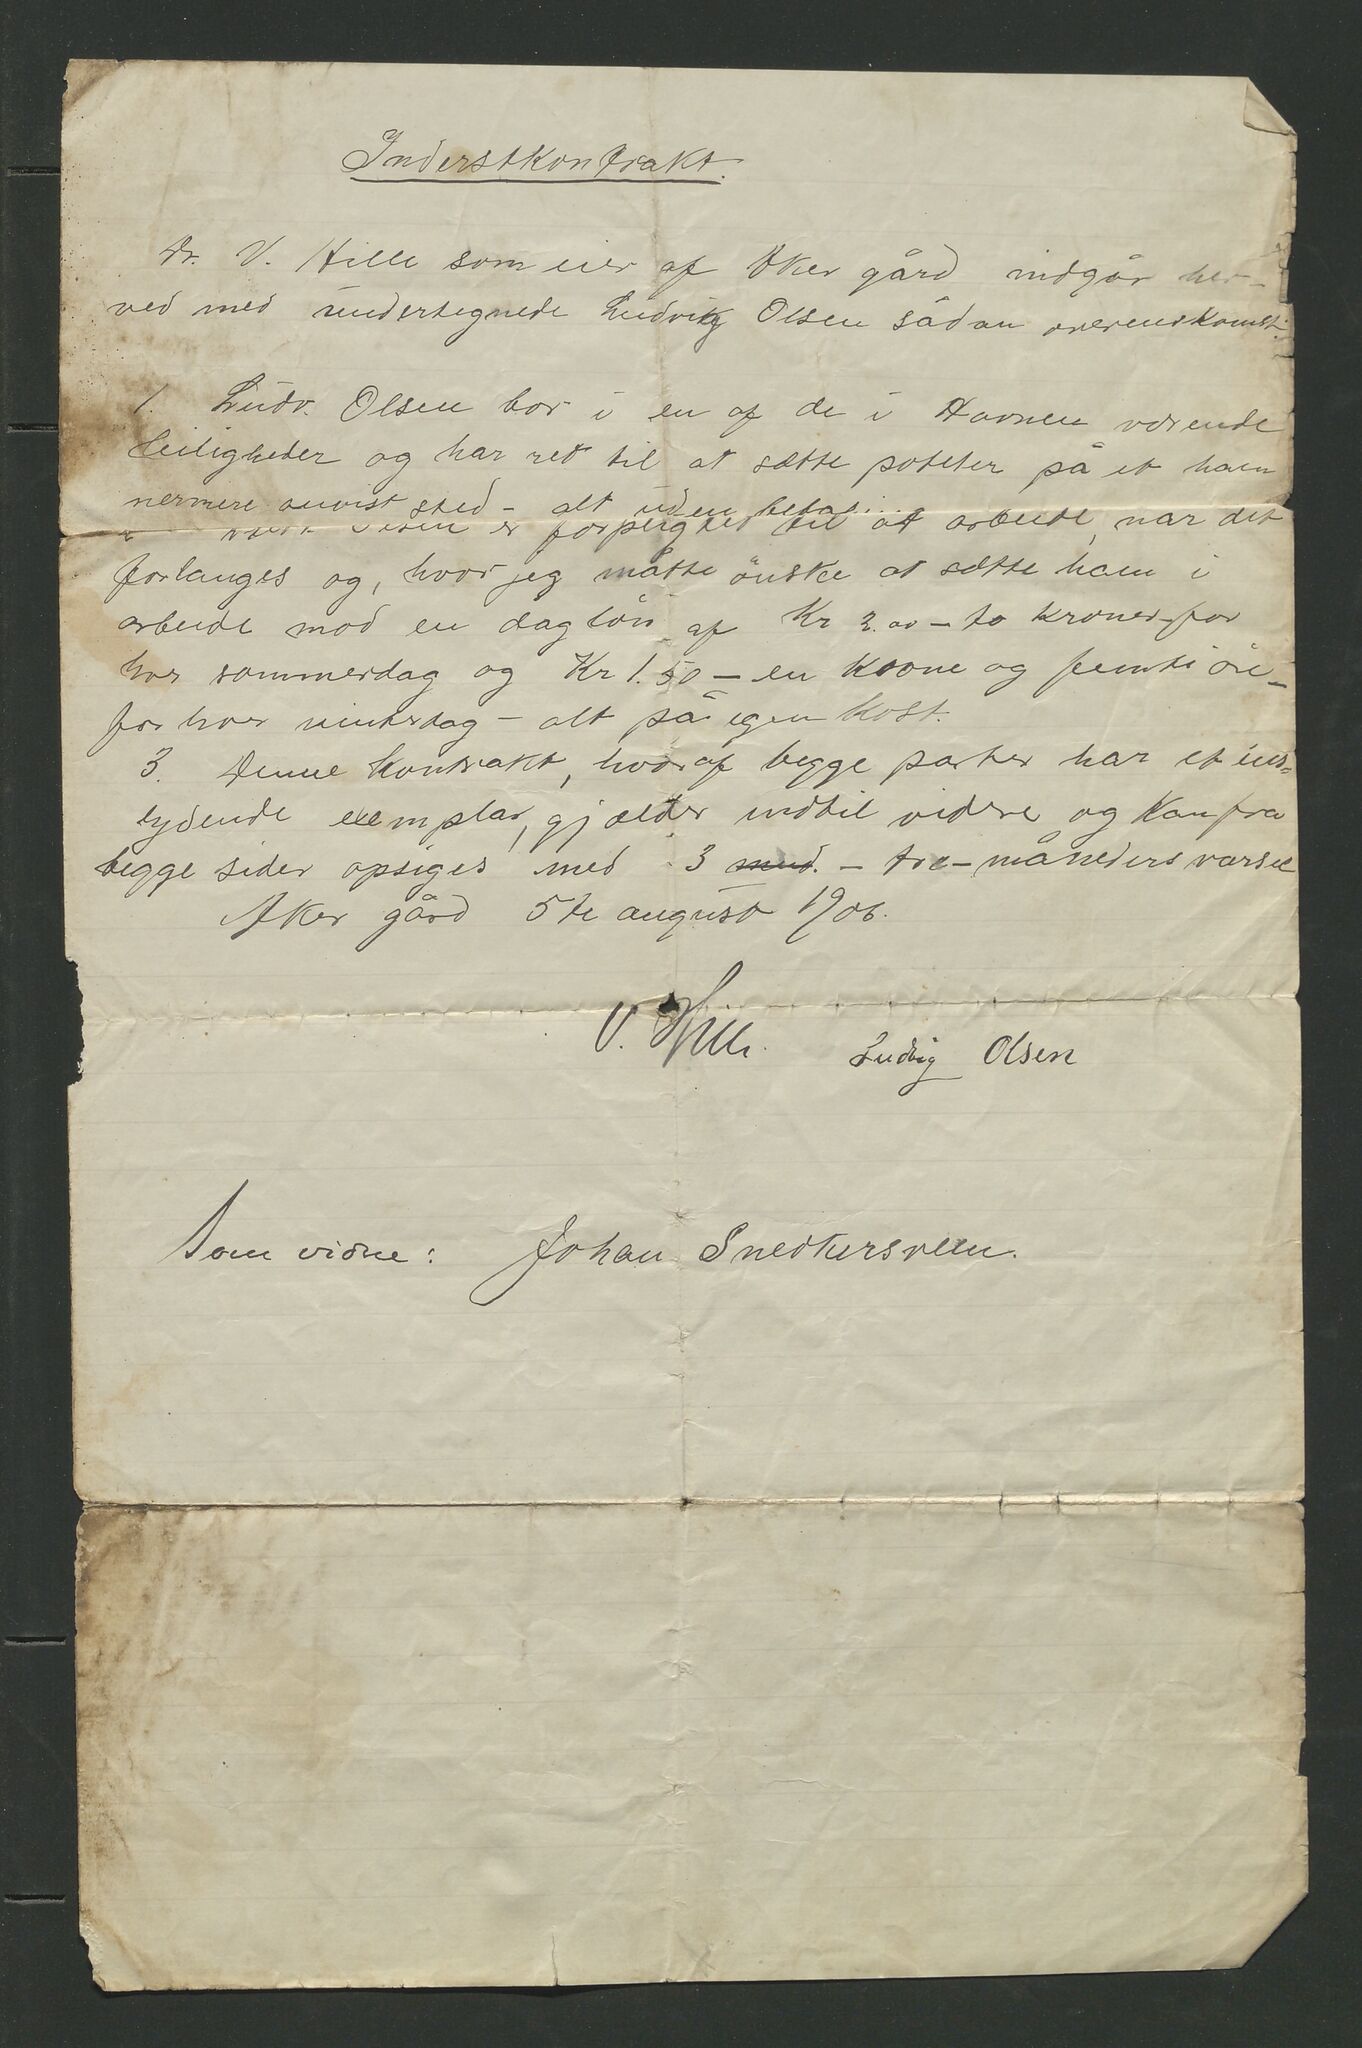 Inderstkontrakt.
Dr. V. Hille som eier af Aker gård indgår her-
ved med undertegnede Ludvig Olsen sådan overenskomst:
1. Ludv. Olsen bor i en af de i Havnen værende
leiligheder og har ret til at sætte poteter på et ham
nermere anvist sted – alt uden
Olsen er forpligtet til at arbeide, når det
forlanges og, hvor jeg måtte ønske at sætte ham i
arbeide mod en dagløn af Kr 2.00 – to kroner – for
hver sommerdag og Kr 1.50 – en krone og femti øre –
for hver vinterdag – alt på egen kost.
3. Denne kontrakt, hvoraf begge parter har et ens-
lydende exemplar, gjælder indtil videre og kan fra
begge sider opsiges med 3 mnd. – tre – måneders varsel
Aker gård 5te august 1906.
V. Hille. Ludvig Olsen
Som vidne: Johan Snedkersveen.